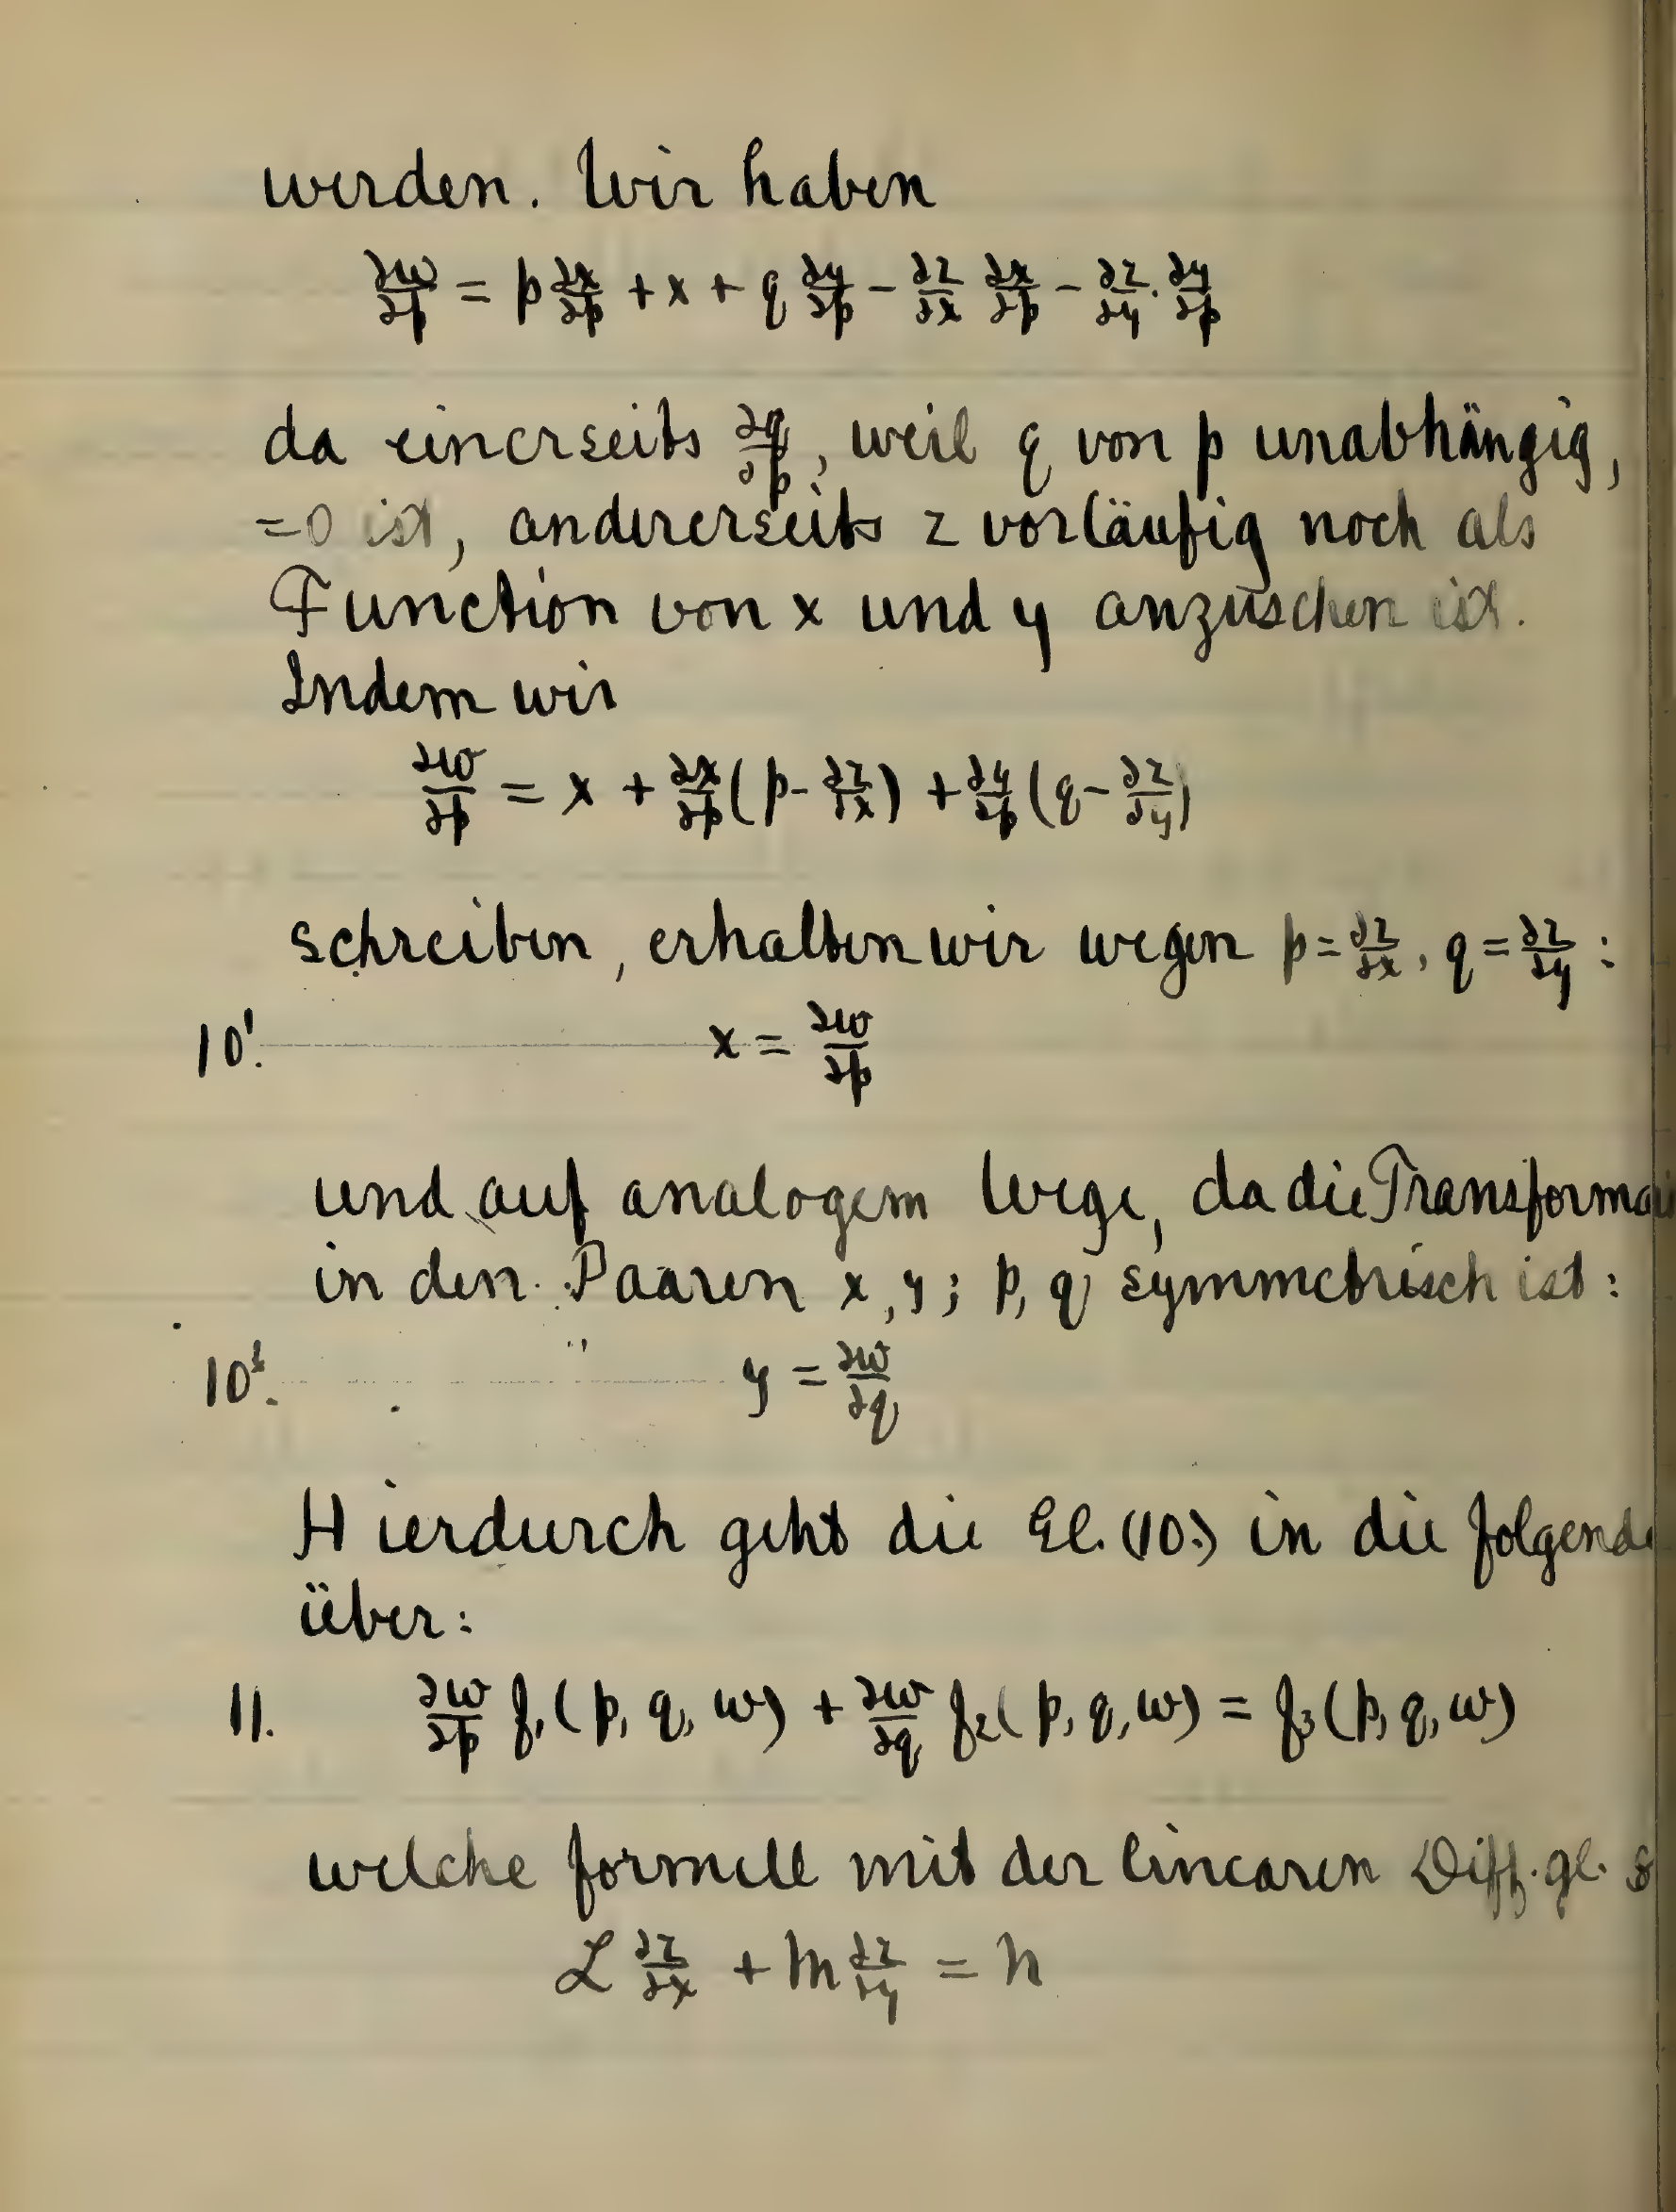 werden. Wir haben
∂w/∂p = p ∂x/∂p + x + q ∂y/∂p − ∂z/∂x ∂x/∂p − ∂z/∂y · ∂y/∂p
da einerseits ∂q/∂p, weil q von p unabhängig,
=0 ist, andererseits z vorläufig noch als
Function von x und y anzusehen ist.
Indem wir
∂w/∂p = x + ∂x/∂p (p − ∂z/∂x) + ∂y/∂p (q − ∂z/∂y)
schreiben, erhalten wir wegen p = ∂z/∂x, q = ∂z/∂y :
10'. x = ∂w/∂p
und auf analogem Wege, da die Transforma
in den Paaren x, y; p, q symmetrisch ist:
y = ∂w/∂q
Hierdurch geht die Gl. (10.) in die folgende
über:
11. ∂w/∂p f₁(p, q, w) + ∂w/∂q f₂(p, q, w) = f₃(p, q, w)
welche formell mit der linearen Diff. gl.
L ∂z/∂x + M ∂z/∂y = N